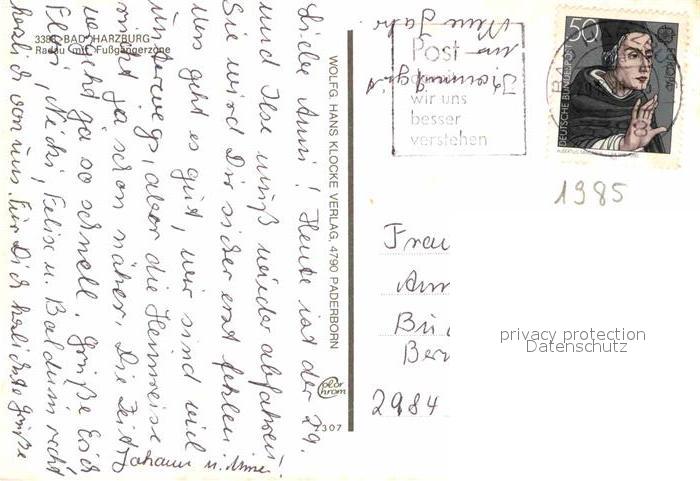 3388 BAD HARZBURG
Radau mit Fußgängerzone
Liebe Anni! Heute ist der 29.
und Ilse muß wieder abfahren!
Sie wird Dir sicher erst fehlen
uns geht es gut, wir sind viel
unterwegs, aber die Heimreise
rückt ja schon näher. Die Zeit
vergeht ja so schnell. Grüße Erich
Felix u. Balduin recht
herzlich von uns. Für Dich herzlichste Grüße
Johann u. Anni
WOLFG. HANS KLOCKE VERLAG, 4790 PADERBORN
color
chrom
307
Post
wir uns
besser
verstehen
50
DEUTSCHE BUNDESPOST
1985
Frau
Ann
Bri
Ber
2984
privacy protection
Datenschutz